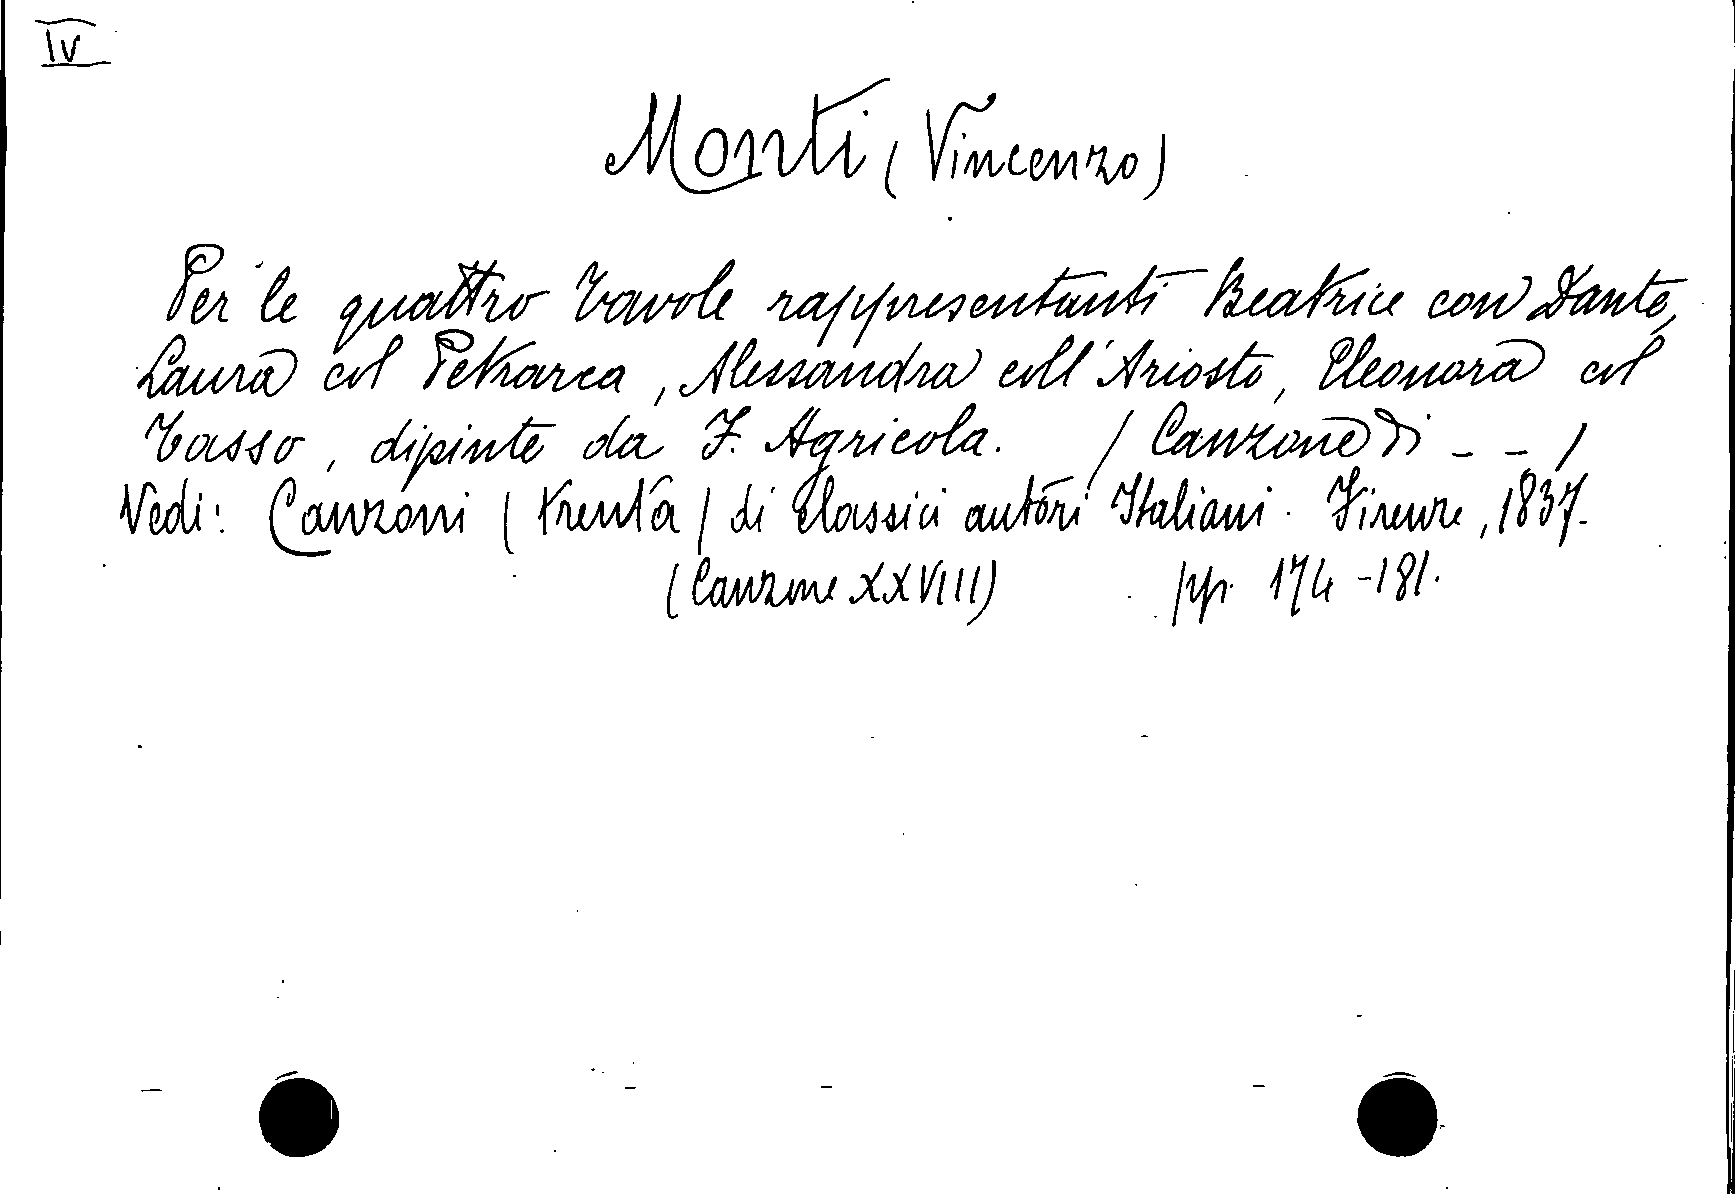 IV
Monti (Vincenzo)
Per le quattro tavole rappresentanti Beatrice con Dante,
Laura col Petrarca, Alessandra coll'Ariosto, Eleonora col
Tasso, dipinte da F. Agricola. / Canzone di - - /
Vedi: Canzoni (trenta) di classici autori Italiani. Firenze, 1837.
(Canzone XXVIII) pp. 174-181.